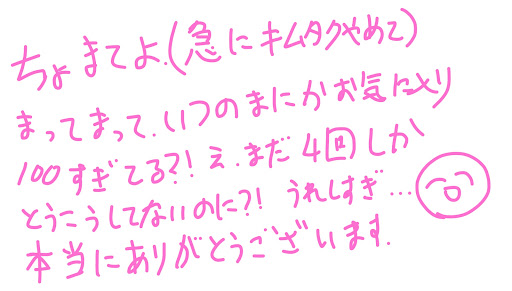 ちょまてよ.(急にキムタクやめて)
まってまって.いつのまにかお気に入り
100すぎてる?!え.まだ4回しか
とうこうしてないのに?!うれしすぎ...
本当にありがとうございます.